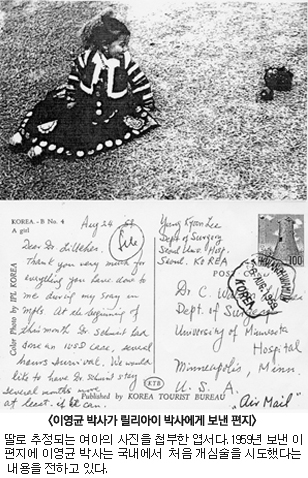 KOREA. - B No. 4
A girl
Color Photo by IPL KOREA
Aug 24 59
file
Dear Dr. Lillehei.
Thank you very much for
everything you have done to
me during my stay in
mpls. At the beginning of
this month Dr. Schmidt had
done an VSD case, several
hours survival. We would
like to have Dr. Schmidt stay
several months more
at least. if he can.
Young Kyoon Lee
Dept. of Surgery
Seoul Univ. Hosp.
Seoul. KOREA
POST
100
KOREA
1959
Dr C. W.
Dept. of Surgery
University of Minnesota
Hospital
Minneapolis, Minn.
U. S. A.
"Air Mail"
KTB
Published by KOREA TOURIST BUREAU
<이영균 박사가 릴리아이 박사에게 보낸 편지>
딸로 추정되는 여아의 사진을 첨부한 엽서다. 1959년 보낸 이
편지에 이영균 박사는 국내에서 처음 개심술을 시도했다는
내용을 전하고 있다.